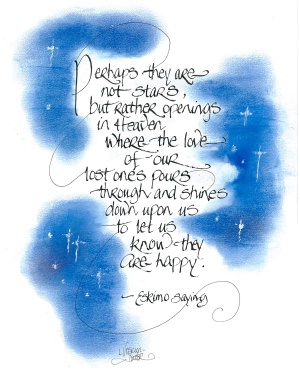 Perhaps they are
not stars,
but rather openings
in Heaven
where the love
of our
lost ones pours
through and shines
down upon us
to let us
know they
are happy.
- Eskimo saying